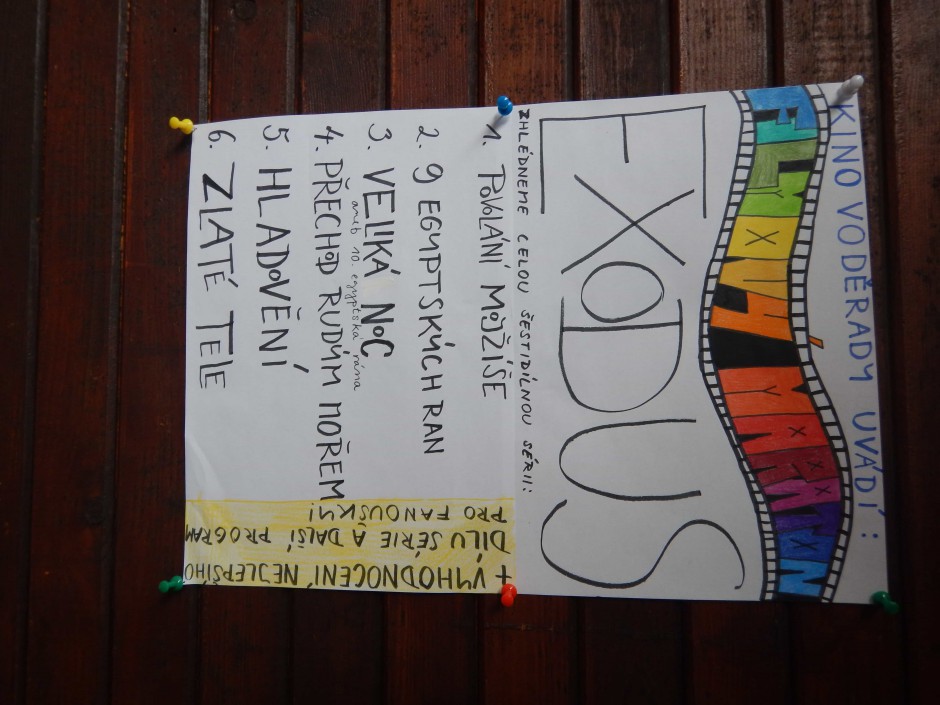 KINO VODĚRADY UVÁDÍ:
EXODUS
ZHLÉDNEME CELOU ŠESTIDÍLNOU SÉRII:
1. POVOLÁNÍ MOJŽÍŠE
2. 9 EGYPTSKÝCH RAN
3. VELIKÁ NOC
aneb 10. egyptská rána
4. PŘECHOD RUDÝM MOŘEM
5. HLADOVĚNÍ
6. ZLATÉ TELE
+ VYHODNOCENÍ NEJLEPŠÍHO
DÍLU SÉRIE A DALŠÍ PROGRAM
PRO FANOUŠKY!